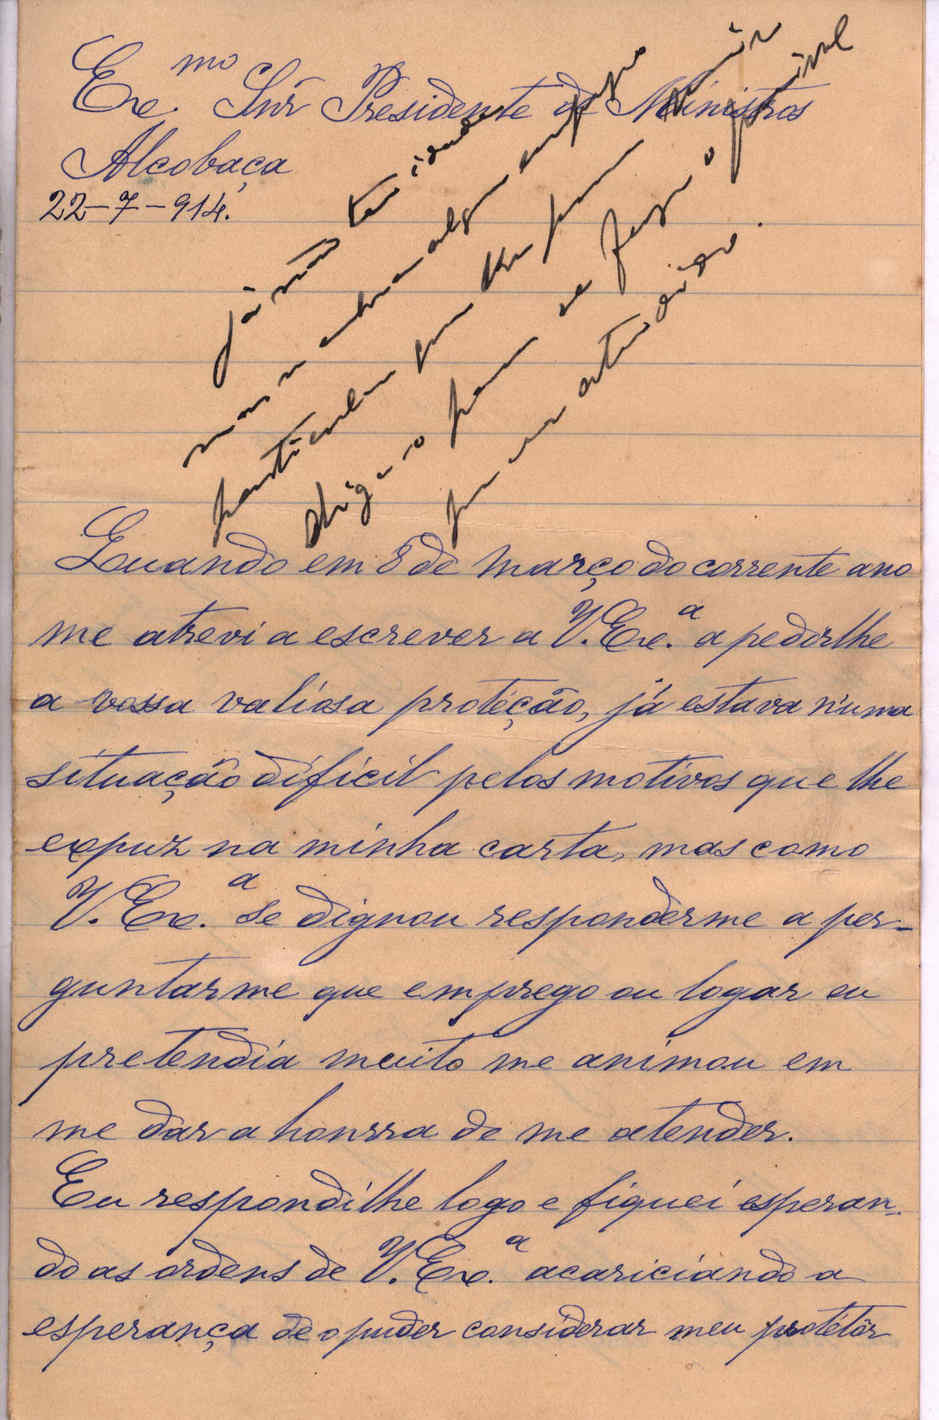 Exe.mo Snr Presidente de Ministros
Alcobaça
22-7-914.
já não tem idade
mas se entrar algum emprego
particular para
diga-o para se fazer o possivel
para ser atendido.
Quando em 8 de Março do corrente ano
me atrevi a escrever a V. Exe.a a pedirlhe
a vossa valiosa proteção, já estava n'uma
situação dificil pelos motivos que lhe
expuz na minha carta, mas como
V. Exe.a se dignou responderme a per-
guntarme que emprego ou logar eu
pretendia muito me animou em
me dar a honrra de me atender.
Eu respondilhe logo e fiquei esperan-
do as ordens de V. Exe.a acariciando a
esperança de o puder considerar meu protetôr